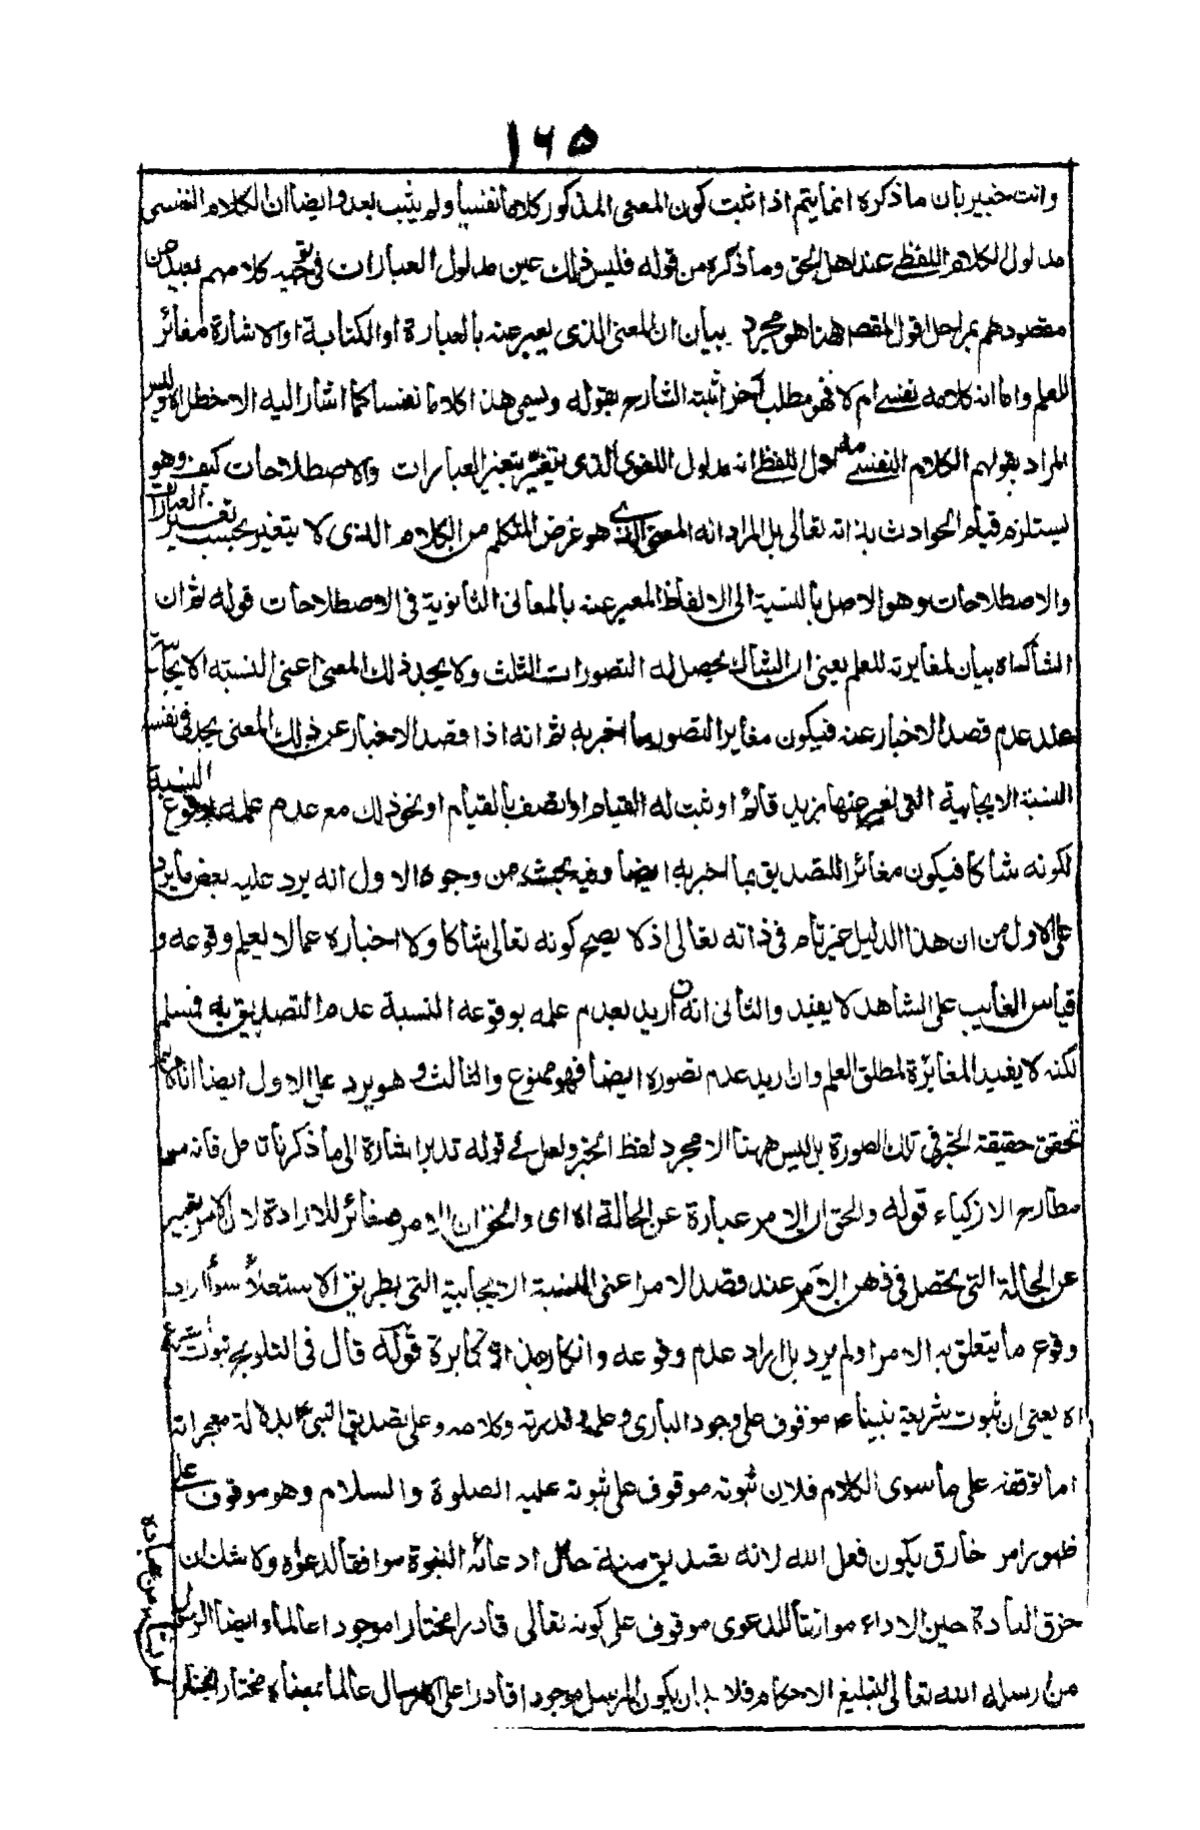 ١٦٥
وانت خبير بان ما ذكره انما يتم اذا ثبت كون المعنى المذكور كلاما نفسيا ولم يثبت بعد وايضا ان الكلام النفسي
مدلول الكلام اللفظي عند اهل الحق وما ذكره من قوله فليس ذلك عين مدلول العبارات في توجيه كلامهم بعيد عن
مقصودهم بمراحل اقول المقصد ههنا هو مجرد بيان ان المعنى الذي يعبر عنه بالعبارة او الكتابة او الاشارة مغائر
للعلم واما انه كلامه نفسي ام لا فهو مطلب آخر اثبته الشارح بقوله ويسمى هذا كلاما نفسيا كما اشار اليه الاخطل اه وليس
المراد بقولهم الكلام النفسي مدلول اللفظ انه مدلول اللغوي الذي يتغير بتغير العبارات والاصطلاحات كيف وهو
يستلزم قيام الحوادث بذاته تعالى بل المراد انه المعنى الذي هو غرض المتكلم من الكلام الذي لا يتغير بحسب تغير العبارات
والاصطلاحات وهو الاصل بالنسبة الى الالفاظ المعبر عنه بالمعانى الثانوية في الاصطلاحات قوله ثم ان
الشاك اه بيان لمغايرته للعلم يعنى ان الشاك يحصل له التصورات الثلث ولا يجد ذلك المعنى اعنى النسبته الايجابية
عند عدم قصد الاخبار عنه فيكون مغايرا لتصور ما اخبر به ثم انه اذا قصد الاخبار عن ذلك المعنى يجد في نفسه
النسبة الايجابية التي يعبر عنها بزيد قائم او ثبت له القيام او اتصف بالقيام او نحو ذلك مع عدم علمه بوقوع النسبة
لكونه شاكا فيكون مغائرا للتصديق بما اخبر به ايضا وفيه بحث من وجوه الاول انه يرد عليه بعض ما يرد
على الاول من ان هذا الدليل غير تام في ذاته تعالى اذ لا يصح كونه تعالى شاكا ولا اخباره عما لا يعلم وقوعه و
قياس الغايب على الشاهد لا يفيد والثانى انه ان اريد بعدم علمه بوقوعه النسبة عدم التصديق به فمسلم
لكنه لا يفيد المغائرة لمطلق العلم وان اريد عدم تصوره ايضا فهو ممنوع والثالث و هو يرد على الاول ايضا انا لا نم
تحقق حقيقة الخبر في تلك الصورة بل ليس ههنا الا مجرد لفظ الخبر ولعل في قوله تدبر اشارة الى ما ذكرنا تامل فانه من
مطارح الازكياء قوله والحق ان الامر عبارة عن الحالة اه اى والحق ان الامر مغائر للارادة لان الامر تعبير
عن الحالة التي يحصل في ذهن الآمر عند قصد الامر اعنى النسبة الايجابية التي بطريق الاستعلاء سواء اراد
وقوع ما يتعلق به الامر او لم يرد بل اراد عدم وقوعه وانكار هذا مكابرة قوله قال في التلويح ثبوت الشرع
اه يعنى ان ثبوت شريعة نبينا عم موقوف على وجود البارى وعلمه وقدرته وكلامه وعلى تصديق النبى عم بدلالة معجزاته
اما توقفه على ما سوى الكلام فلان ثبوته موقوف على ثبوته عليه الصلوة والسلام وهو موقوف على
ظهور امر خارق يكون فعل الله لانه تصديق منه حال ادعائه النبوة موافقا لدعواه ولا شك ان
خرق العادة حين الاداء موازيا للدعوى موقوف على كونه تعالى قادرا مختارا موجودا عالما وايضا الرسول
من ارسله الله تعالى لتبليغ الاحكام فلا بد ان يكون المرسل موجودا قادرا على الارسال عالما بمعناه مختارا يختار
من يشاء من عباده